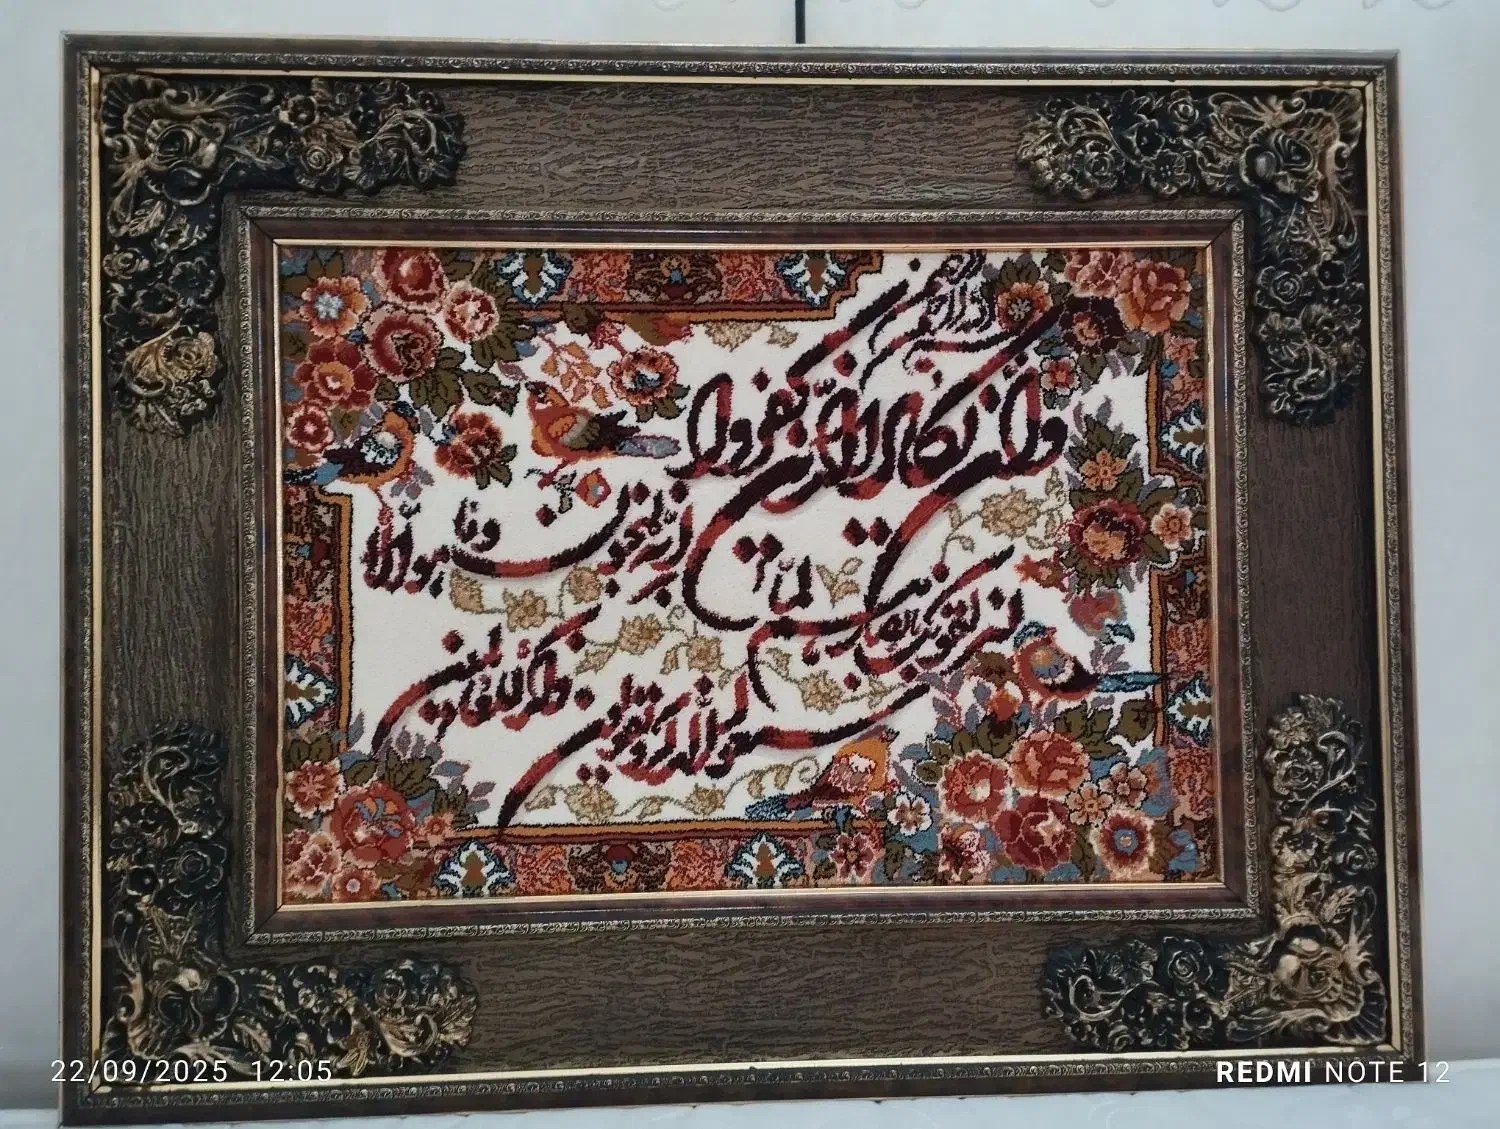 بسم الله الرحمن الرحیم
وان یکاد الذین کفروا
لیزلقونک بابصارهم لما
سمعوا الذکر و یقولون
انه لمجنون و ما هو الا
ذکر للعالمین
22/09/2025 12:05
REDMI NOTE 12